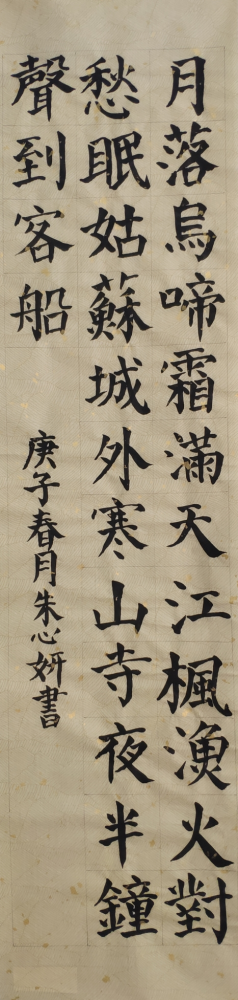 月落烏啼霜滿天江楓漁火對
愁眠姑蘇城外寒山寺夜半鐘
聲到客船
庚子春月朱心妍書